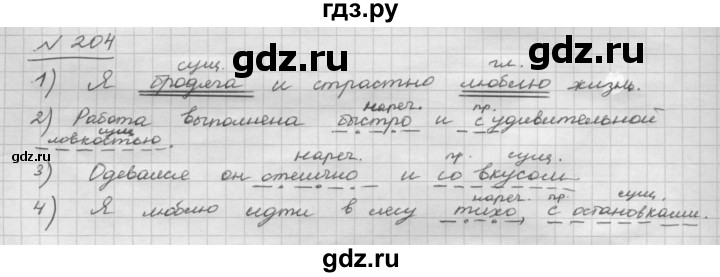 гдз.ру
№ 204
сущ. гл.
1) Я бродяга и страстно люблю жизнь.
нареч. пр.
2) Работа выполнена быстро и с удивительной
сущ
ловкостью.
нареч. пр. сущ.
3) Одевался он отлично и со вкусом
нареч. пр. сущ.
4) Я люблю идти в лесу тихо, с остановками.
gdz.ru gdz.ru
gdz.ru gdz.ru
gdz.ru gdz.ru
gdz.ru gdz.ru